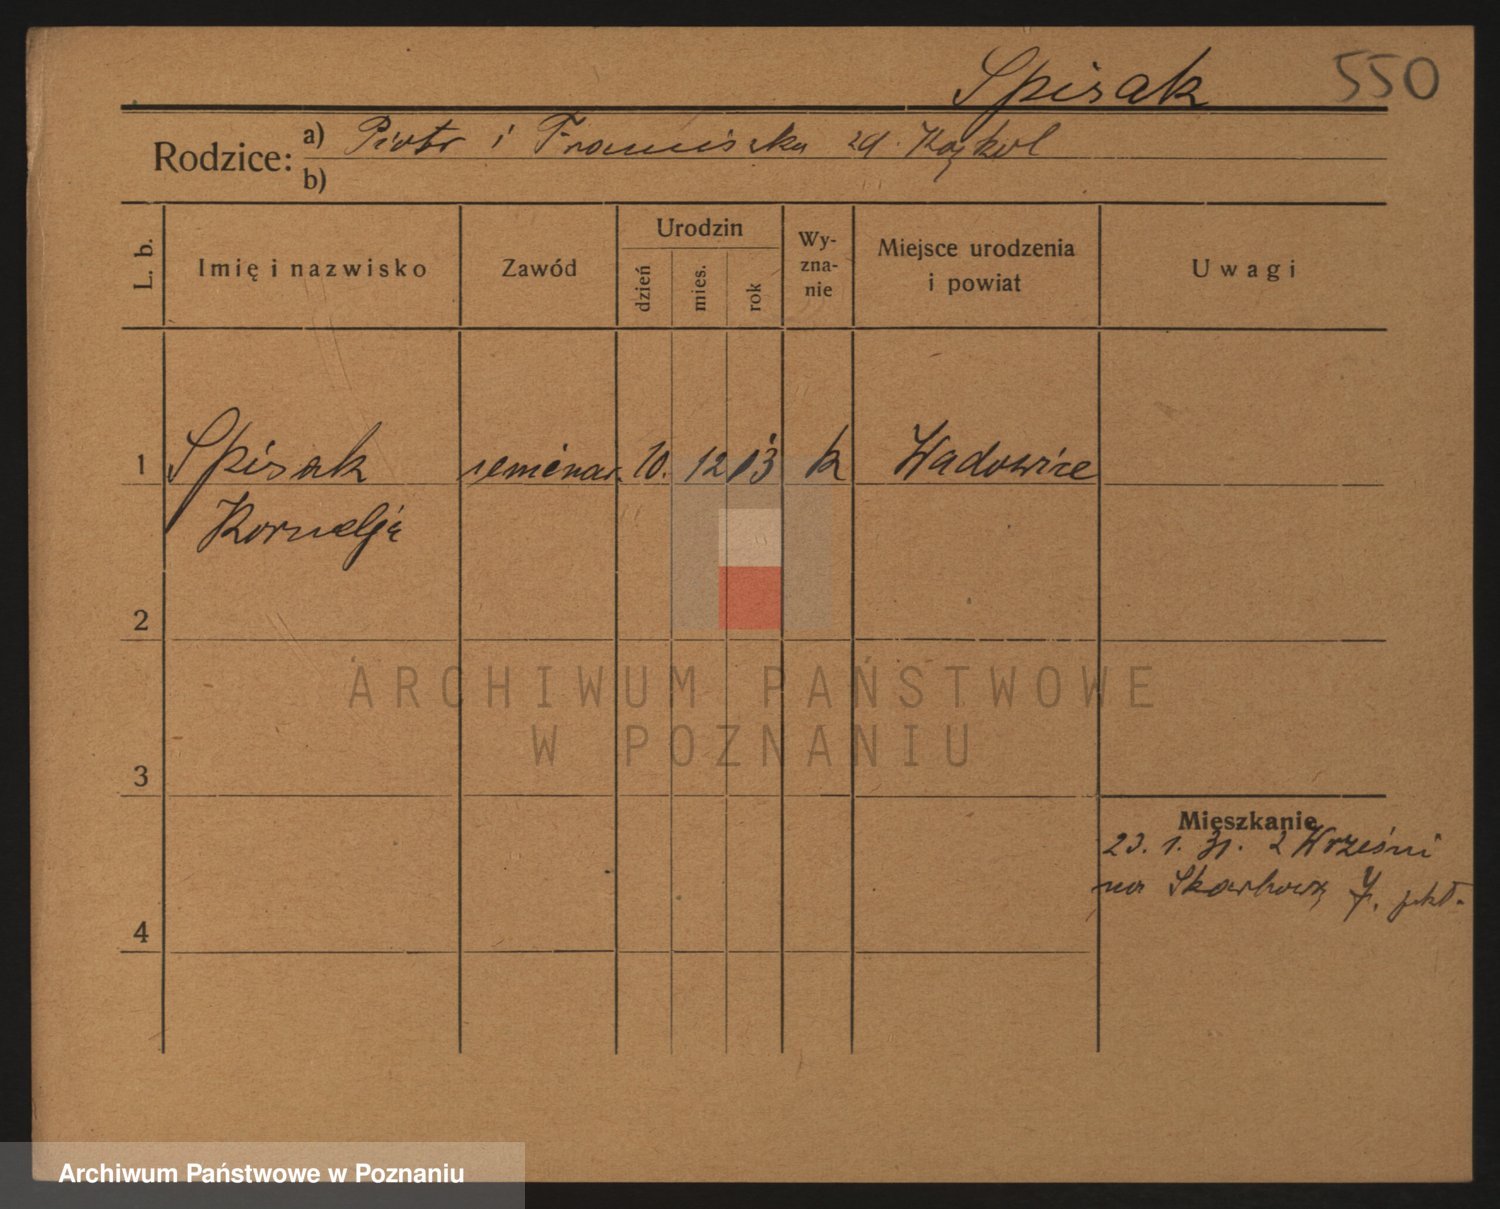 Spisak 550
Rodzice: a) Piotr i Franciszka zd. Kąkol
b)
L. b. Imię i nazwisko Zawód Urodzin dzień mies. rok Wyznanie Miejsce urodzenia i powiat Uwagi
1 Spisak seminar. 10. 12 13 k Wadowice
Kornelja
2
3
Mieszkanie
23. 1. 31. z Wrześni
na Skarbową
4
ARCHIWUM PAŃSTWOWE
W POZNANIU
Archiwum Państwowe w Poznaniu